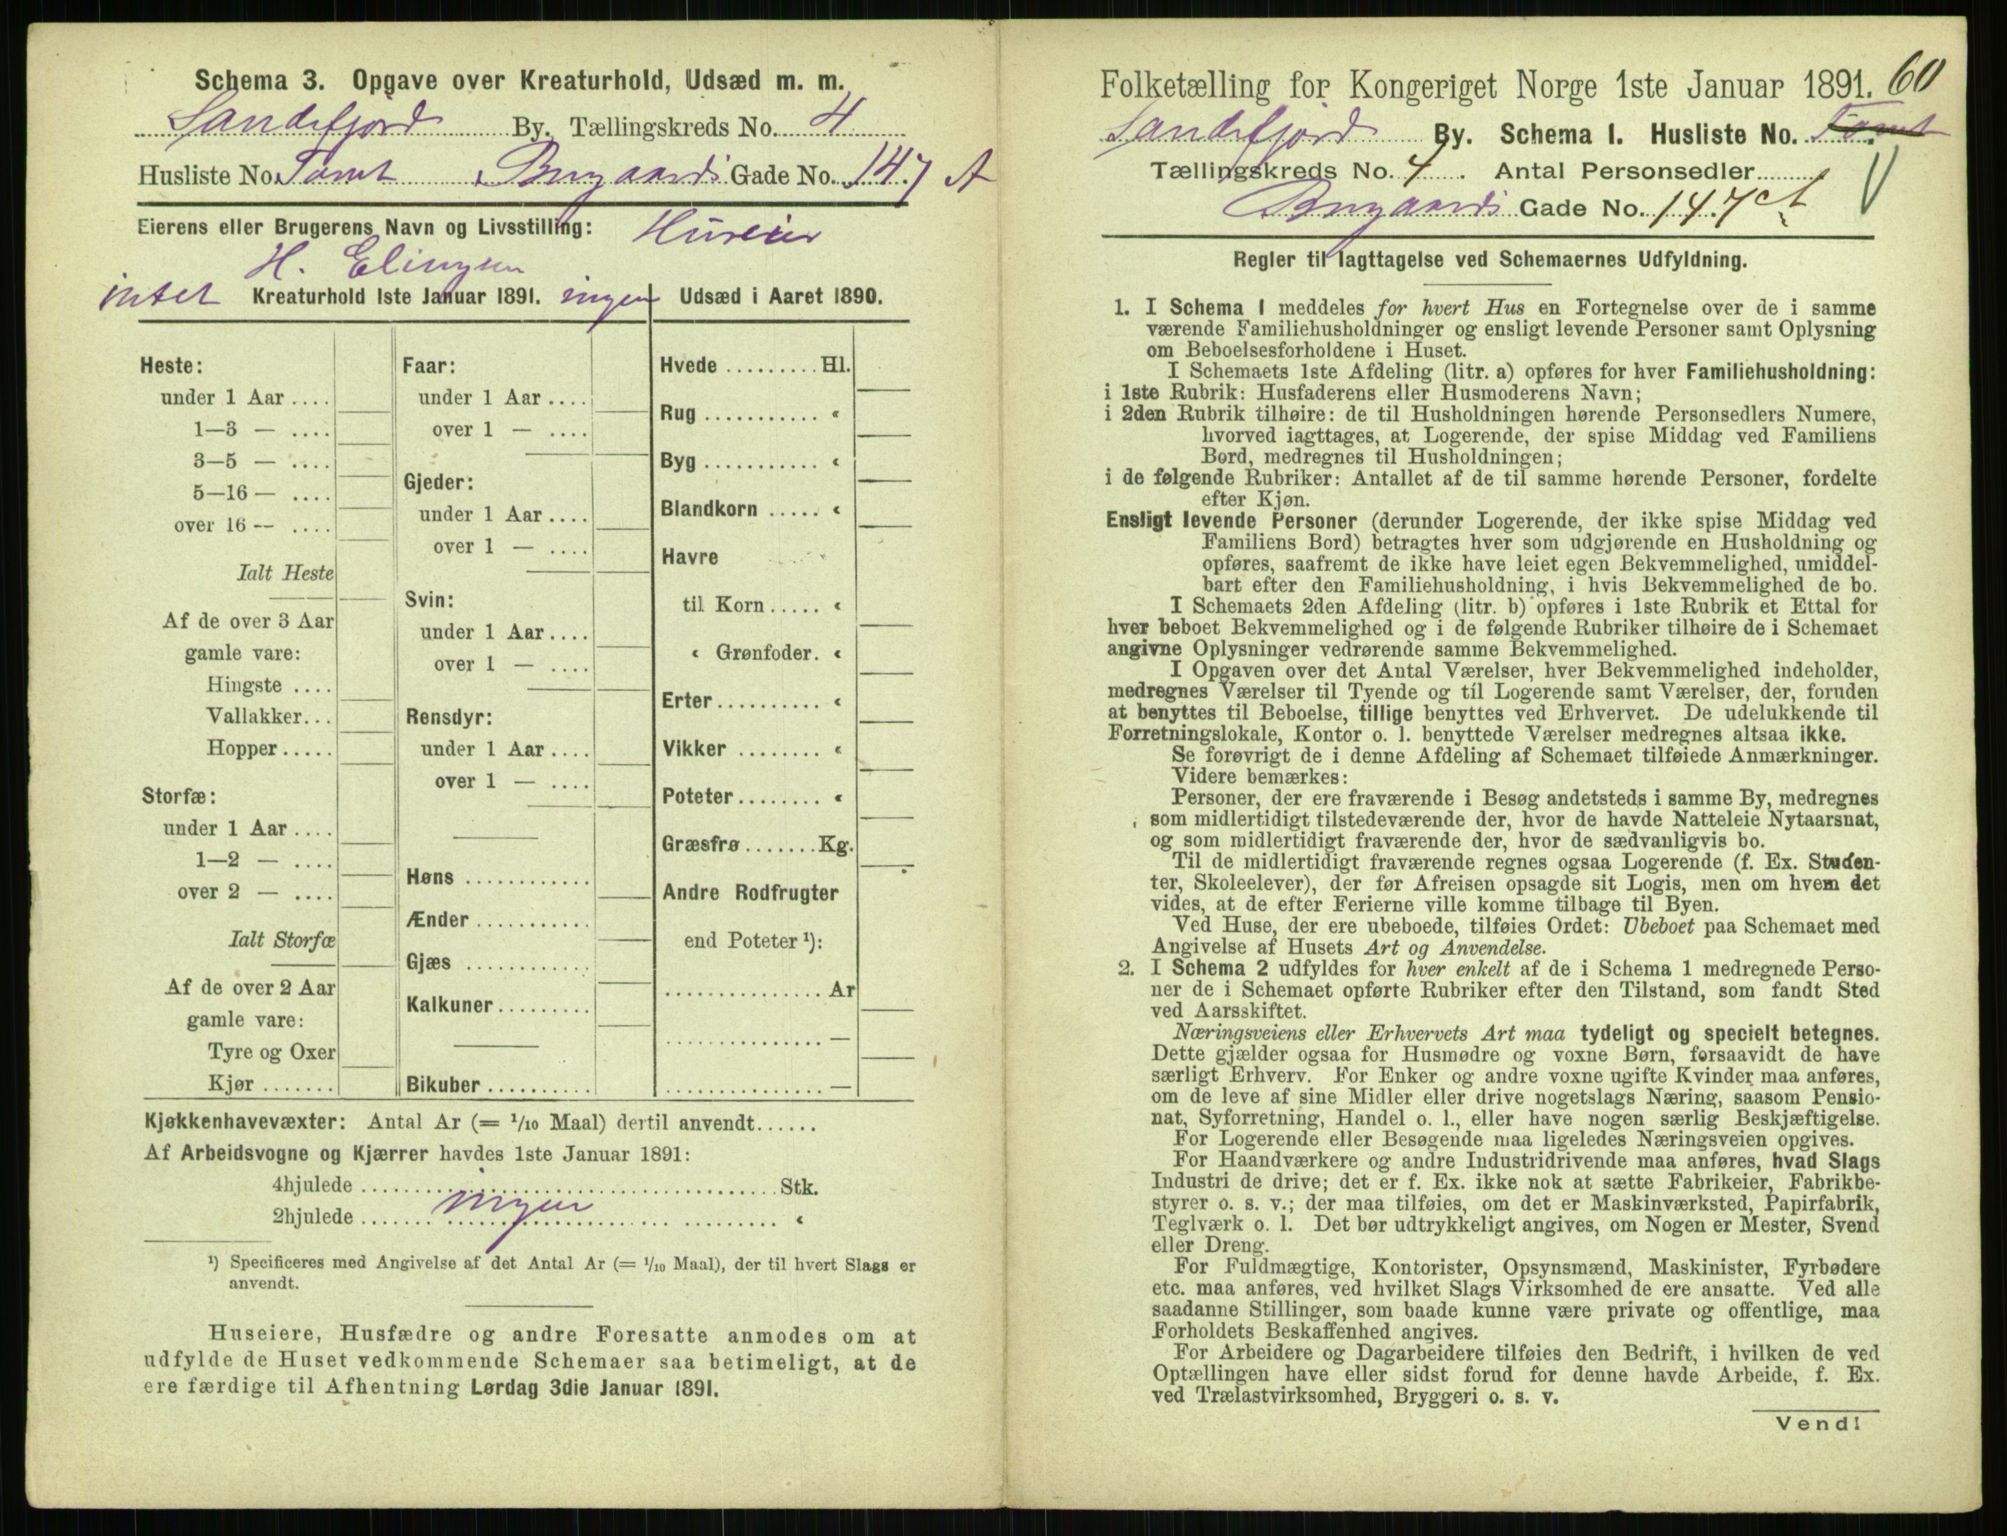 Schema 3. Opgave over Kreaturhold, Udsæd m. m.
Sandefjord By. Tællingskreds No. 4
Husliste No. Tomt Bugaards Gade No. 147 A
Eierens eller Brugerens Navn og Livsstilling: Huseier
H. Elingsen
intet Kreaturhold 1ste Januar 1891. ingen Udsæd i Aaret 1890.
Heste:
under 1 Aar ....
1—3 — ....
3—5 — ....
5—16 — ....
over 16 — ....
Ialt Heste
Af de over 3 Aar
gamle vare:
Hingste ....
Vallakker...
Hopper.....
Storfæ:
under 1 Aar ....
1—2 — ....
over 2 — ....
Ialt Storfæ
Af de over 2 Aar
gamle vare:
Tyre og Oxer
Kjør .......
Faar:
under 1 Aar ....
over 1 — ....
Gjeder:
under 1 Aar ....
over 1 — ....
Svin:
under 1 Aar ....
over 1 — ....
Rensdyr:
under 1 Aar ....
over 1 — ....
Høns ............
Ænder ...........
Gjæs ............
Kalkuner.........
Bikuber ..........
Hvede ......... Hl.
Rug ........... «
Byg ........... «
Blandkorn ..... «
Havre
til Korn ..... «
« Grønfoder. «
Erter.......... «
Vikker ........ «
Poteter........ «
Græsfrø....... Kg.
Andre Rodfrugter
end Poteter ¹):
............... Ar
............... —
............... —
Kjøkkenhavevæxter: Antal Ar (= 1/10 Maal) dertil anvendt......
Af Arbeidsvogne og Kjærrer havdes 1ste Januar 1891:
4hjulede ........................ Stk.
2hjulede ....... ingen ....... «
¹) Specificeres med Angivelse af det Antal Ar (= 1/10 Maal), der til hvert Slags er
anvendt.
Huseiere, Husfædre og andre Foresatte anmodes om at
udfylde de Huset vedkommende Schemaer saa betimeligt, at de
ere færdige til Afhentning Lørdag 3die Januar 1891.
60
Folketælling for Kongeriget Norge 1ste Januar 1891.
Sandefjord By. Schema I. Husliste No. Tomt
Tællingskreds No. 4. Antal Personsedler........
Bugaards Gade No. 147 A
Regler til Iagttagelse ved Schemaernes Udfyldning.
1. I Schema 1 meddeles for hvert Hus en Fortegnelse over de i samme
værende Familiehusholdninger og ensligt levende Personer samt Oplysning
om Beboelsesforholdene i Huset.
I Schemaets 1ste Afdeling (litr. a) opføres for hver Familiehusholdning:
i 1ste Rubrik: Husfaderens eller Husmoderens Navn;
i 2den Rubrik tilhøire: de til Husholdningen hørende Personsedlers Numere,
hvorved iagttages, at Logerende, der spise Middag ved Familiens
Bord, medregnes til Husholdningen;
i de følgende Rubriker: Antallet af de til samme hørende Personer, fordelte
efter Kjøn.
Ensligt levende Personer (derunder Logerende, der ikke spise Middag ved
Familiens Bord) betragtes hver som udgjørende en Husholdning og
opføres, saafremt de ikke have leiet egen Bekvemmelighed, umiddel-
bart efter den Familiehusholdning, i hvis Bekvemmelighed de bo.
I Schemaets 2den Afdeling (litr. b) opføres i 1ste Rubrik et Ettal for
hver beboet Bekvemmelighed og i de følgende Rubriker tilhøire de i Schemaet
angivne Oplysninger vedrørende samme Bekvemmelighed.
I Opgaven over det Antal Værelser, hver Bekvemmelighed indeholder,
medregnes Værelser til Tyende og til Logerende samt Værelser, der, foruden
at benyttes til Beboelse, tillige benyttes ved Erhvervet. De udelukkende til
Forretningslokale, Kontor o. l. benyttede Værelser medregnes altsaa ikke.
Se forøvrigt de i denne Afdeling af Schemaet tilføiede Anmærkninger.
Videre bemærkes:
Personer, der ere fraværende i Besøg andetsteds i samme By, medregnes
som midlertidigt tilstedeværende der, hvor de havde Natteleie Nytaarsnat,
og som midlertidigt fraværende der, hvor de sædvanligvis bo.
Til de midlertidigt fraværende regnes ogsaa Logerende (f. Ex. Studen-
ter, Skoleelever), der før Afreisen opsagde sit Logis, men om hvem det
vides, at de efter Ferierne ville komme tilbage til Byen.
Ved Huse, der ere ubeboede, tilføies Ordet: Ubeboet paa Schemaet med
Angivelse af Husets Art og Anvendelse.
2. I Schema 2 udfyldes for hver enkelt af de i Schema 1 medregnede Perso-
ner de i Schemaet opførte Rubriker efter den Tilstand, som fandt Sted
ved Aarsskiftet.
Næringsveiens eller Erhvervets Art maa tydeligt og specielt betegnes.
Dette gjælder ogsaa for Husmødre og voxne Børn, forsaavidt de have
særligt Erhverv. For Enker og andre voxne ugifte Kvinder maa anføres,
om de leve af sine Midler eller drive nogetslags Næring, saasom Pensio-
nat, Syforretning, Handel o. l., eller have nogen særlig Beskjæftigelse.
For Logerende eller Besøgende maa ligeledes Næringsveien opgives.
For Haandværkere og andre Industridrivende maa anføres, hvad Slags
Industri de drive; det er f. Ex. ikke nok at sætte Fabrikeier, Fabrikbe-
styrer o. s. v.; der maa tilføies, om det er Maskinværksted, Papirfabrik,
Teglværk o. l. Det bør udtrykkeligt angives, om Nogen er Mester, Svend
eller Dreng.
For Fuldmægtige, Kontorister, Opsynsmænd, Maskinister, Fyrbødere
etc. maa anføres, ved hvilket Slags Virksomhed de ere ansatte. Ved alle
saadanne Stillinger, som baade kunne være private og offentlige, maa
Forholdets Beskaffenhed angives.
For Arbeidere og Dagarbeidere tilføies den Bedrift, i hvilken de ved
Optællingen have eller sidst forud for denne havde Arbeide, f. Ex.
ved Trælastvirksomhed, Bryggeri o. s. v.
Vend!